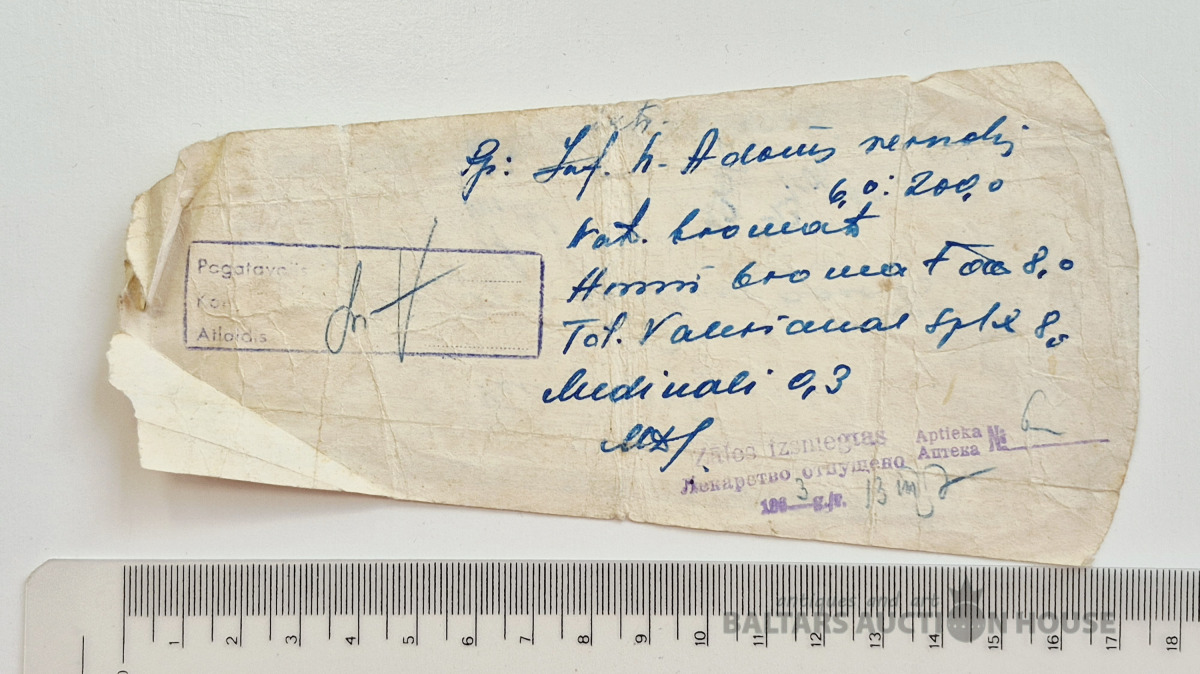 Rp: Inf. h. Adonis vernalis
6,0:200,0
Nat. bromat
Ammi bromat āā 8,0
Tct. Valerianae splx 8,0
Medinali 0,3
MDS.
Pagatavojis
Kon
Atlaidis
Zāles izsniegtas Aptieka №
Лекарство отпущено Аптека 6
196 3 g./г. 13 III
1 2 3 4 5 6 7 8 9 10 11 12 13 14 15 16 17 18
0
antiques and art
BALTARS AUCTION HOUSE